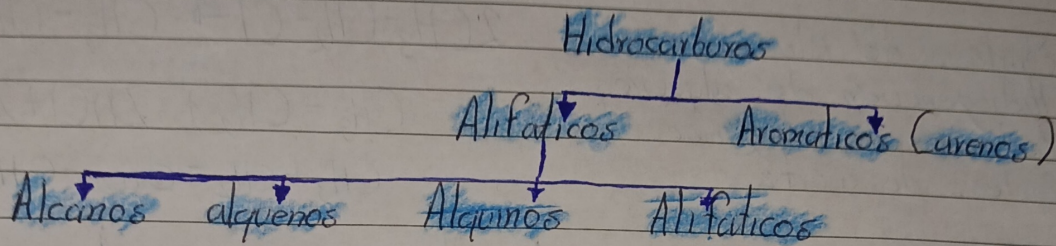 Hidrocarburos
Alifaticos Aromaticos (arenos)
Alcanos alquenos Alquinos Alifaticos